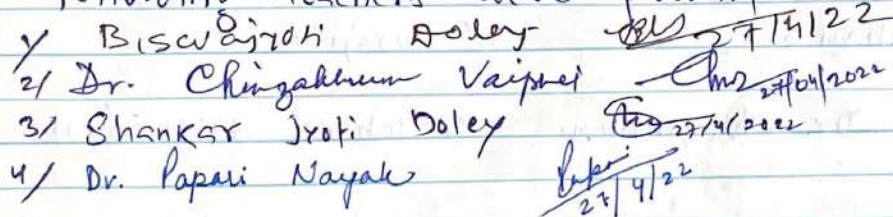 1/ Biswajyoti Doley 27/4/22
2/ Dr. Chingakhum Vaiphei 27/04/2022
3/ Shankar Jyoti Doley 27/4/2022
4/ Dr. Papari Nayak Papari 27/4/22